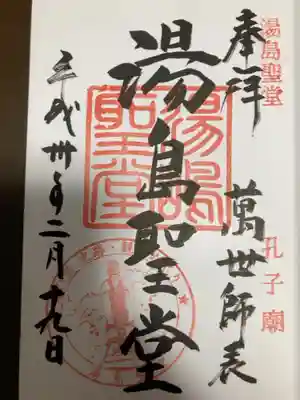 湯島聖堂
孔子廟
奉拝
萬世師表
湯島聖堂
湯島聖堂
平成卅年二月十九日